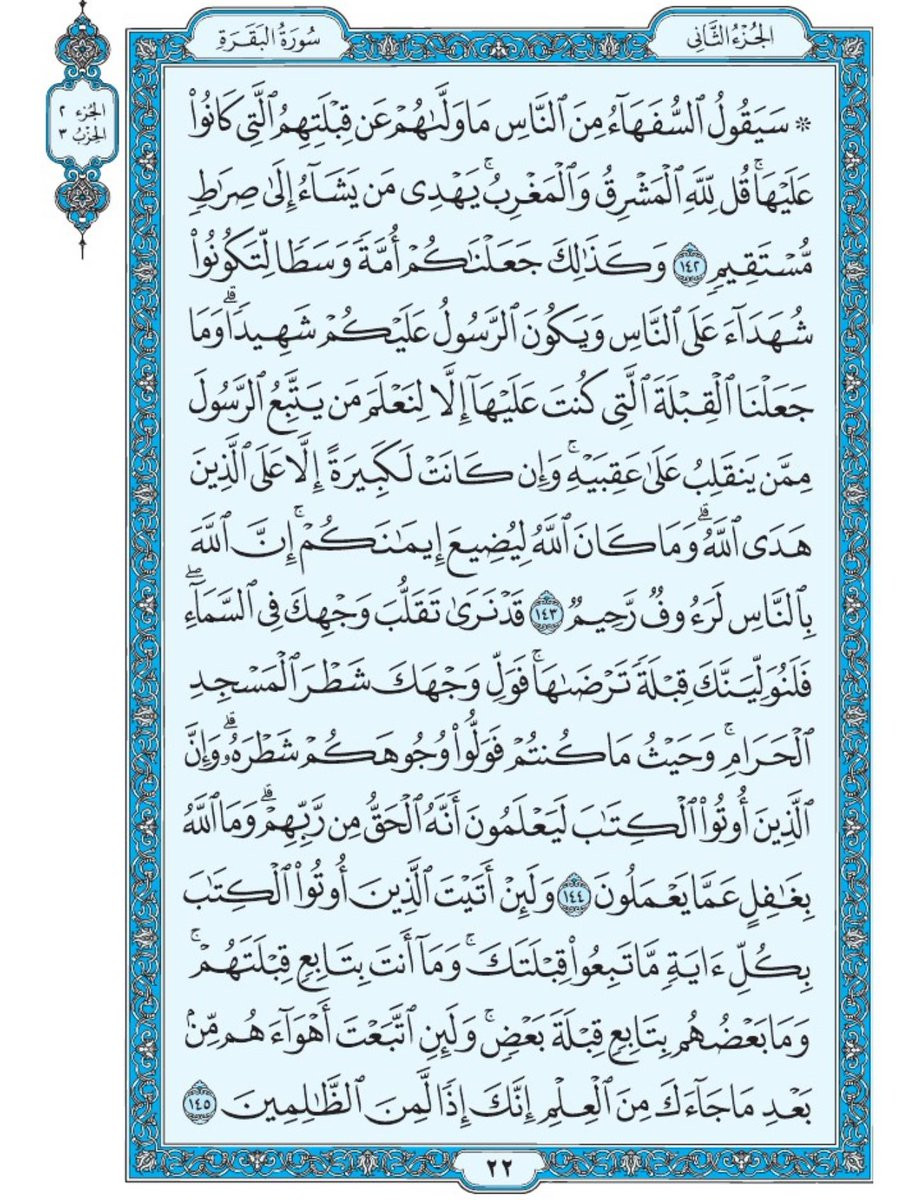 سُورَةُ البَقَرَةِ
الجُزْءُ الثَّانِي
الجُزء ٢
الحِزبُ ٣
۞ سَيَقُولُ ٱلسُّفَهَآءُ مِنَ ٱلنَّاسِ مَا وَلَّىٰهُمْ عَن قِبْلَتِهِمُ ٱلَّتِي كَانُوا۟
عَلَيْهَا ۚ قُل لِّلَّهِ ٱلْمَشْرِقُ وَٱلْمَغْرِبُ ۚ يَهْدِى مَن يَشَآءُ إِلَىٰ صِرَٰطٍ
مُّسْتَقِيمٍ ١٤٢ وَكَذَٰلِكَ جَعَلْنَٰكُمْ أُمَّةً وَسَطًا لِّتَكُونُوا۟
شُهَدَآءَ عَلَى ٱلنَّاسِ وَيَكُونَ ٱلرَّسُولُ عَلَيْكُمْ شَهِيدًا ۗ وَمَا
جَعَلْنَا ٱلْقِبْلَةَ ٱلَّتِى كُنتَ عَلَيْهَآ إِلَّا لِنَعْلَمَ مَن يَتَّبِعُ ٱلرَّسُولَ
مِمَّن يَنقَلِبُ عَلَىٰ عَقِبَيْهِ ۚ وَإِن كَانَتْ لَكَبِيرَةً إِلَّا عَلَى ٱلَّذِينَ
هَدَى ٱللَّهُ ۗ وَمَا كَانَ ٱللَّهُ لِيُضِيعَ إِيمَٰنَكُمْ ۚ إِنَّ ٱللَّهَ
بِٱلنَّاسِ لَرَءُوفٌ رَّحِيمٌ ١٤٣ قَدْ نَرَىٰ تَقَلُّبَ وَجْهِكَ فِى ٱلسَّمَآءِ ۖ
فَلَنُوَلِّيَنَّكَ قِبْلَةً تَرْضَىٰهَا ۚ فَوَلِّ وَجْهَكَ شَطْرَ ٱلْمَسْجِدِ
ٱلْحَرَامِ ۚ وَحَيْثُ مَا كُنتُمْ فَوَلُّوا۟ وُجُوهَكُمْ شَطْرَهُۥ ۗ وَإِنَّ
ٱلَّذِينَ أُوتُوا۟ ٱلْكِتَٰبَ لَيَعْلَمُونَ أَنَّهُ ٱلْحَقُّ مِن رَّبِّهِمْ ۗ وَمَا ٱللَّهُ
بِغَٰفِلٍ عَمَّا يَعْمَلُونَ ١٤٤ وَلَئِنْ أَتَيْتَ ٱلَّذِينَ أُوتُوا۟ ٱلْكِتَٰبَ
بِكُلِّ ءَايَةٍ مَّا تَبِعُوا۟ قِبْلَتَكَ ۚ وَمَآ أَنتَ بِتَابِعٍ قِبْلَتَهُمْ ۚ
وَمَا بَعْضُهُم بِتَابِعٍ قِبْلَةَ بَعْضٍ ۚ وَلَئِنِ ٱتَّبَعْتَ أَهْوَآءَهُم مِّنۢ
بَعْدِ مَا جَآءَكَ مِنَ ٱلْعِلْمِ إِنَّكَ إِذًا لَّمِنَ ٱلظَّٰلِمِينَ ١٤٥
٢٢